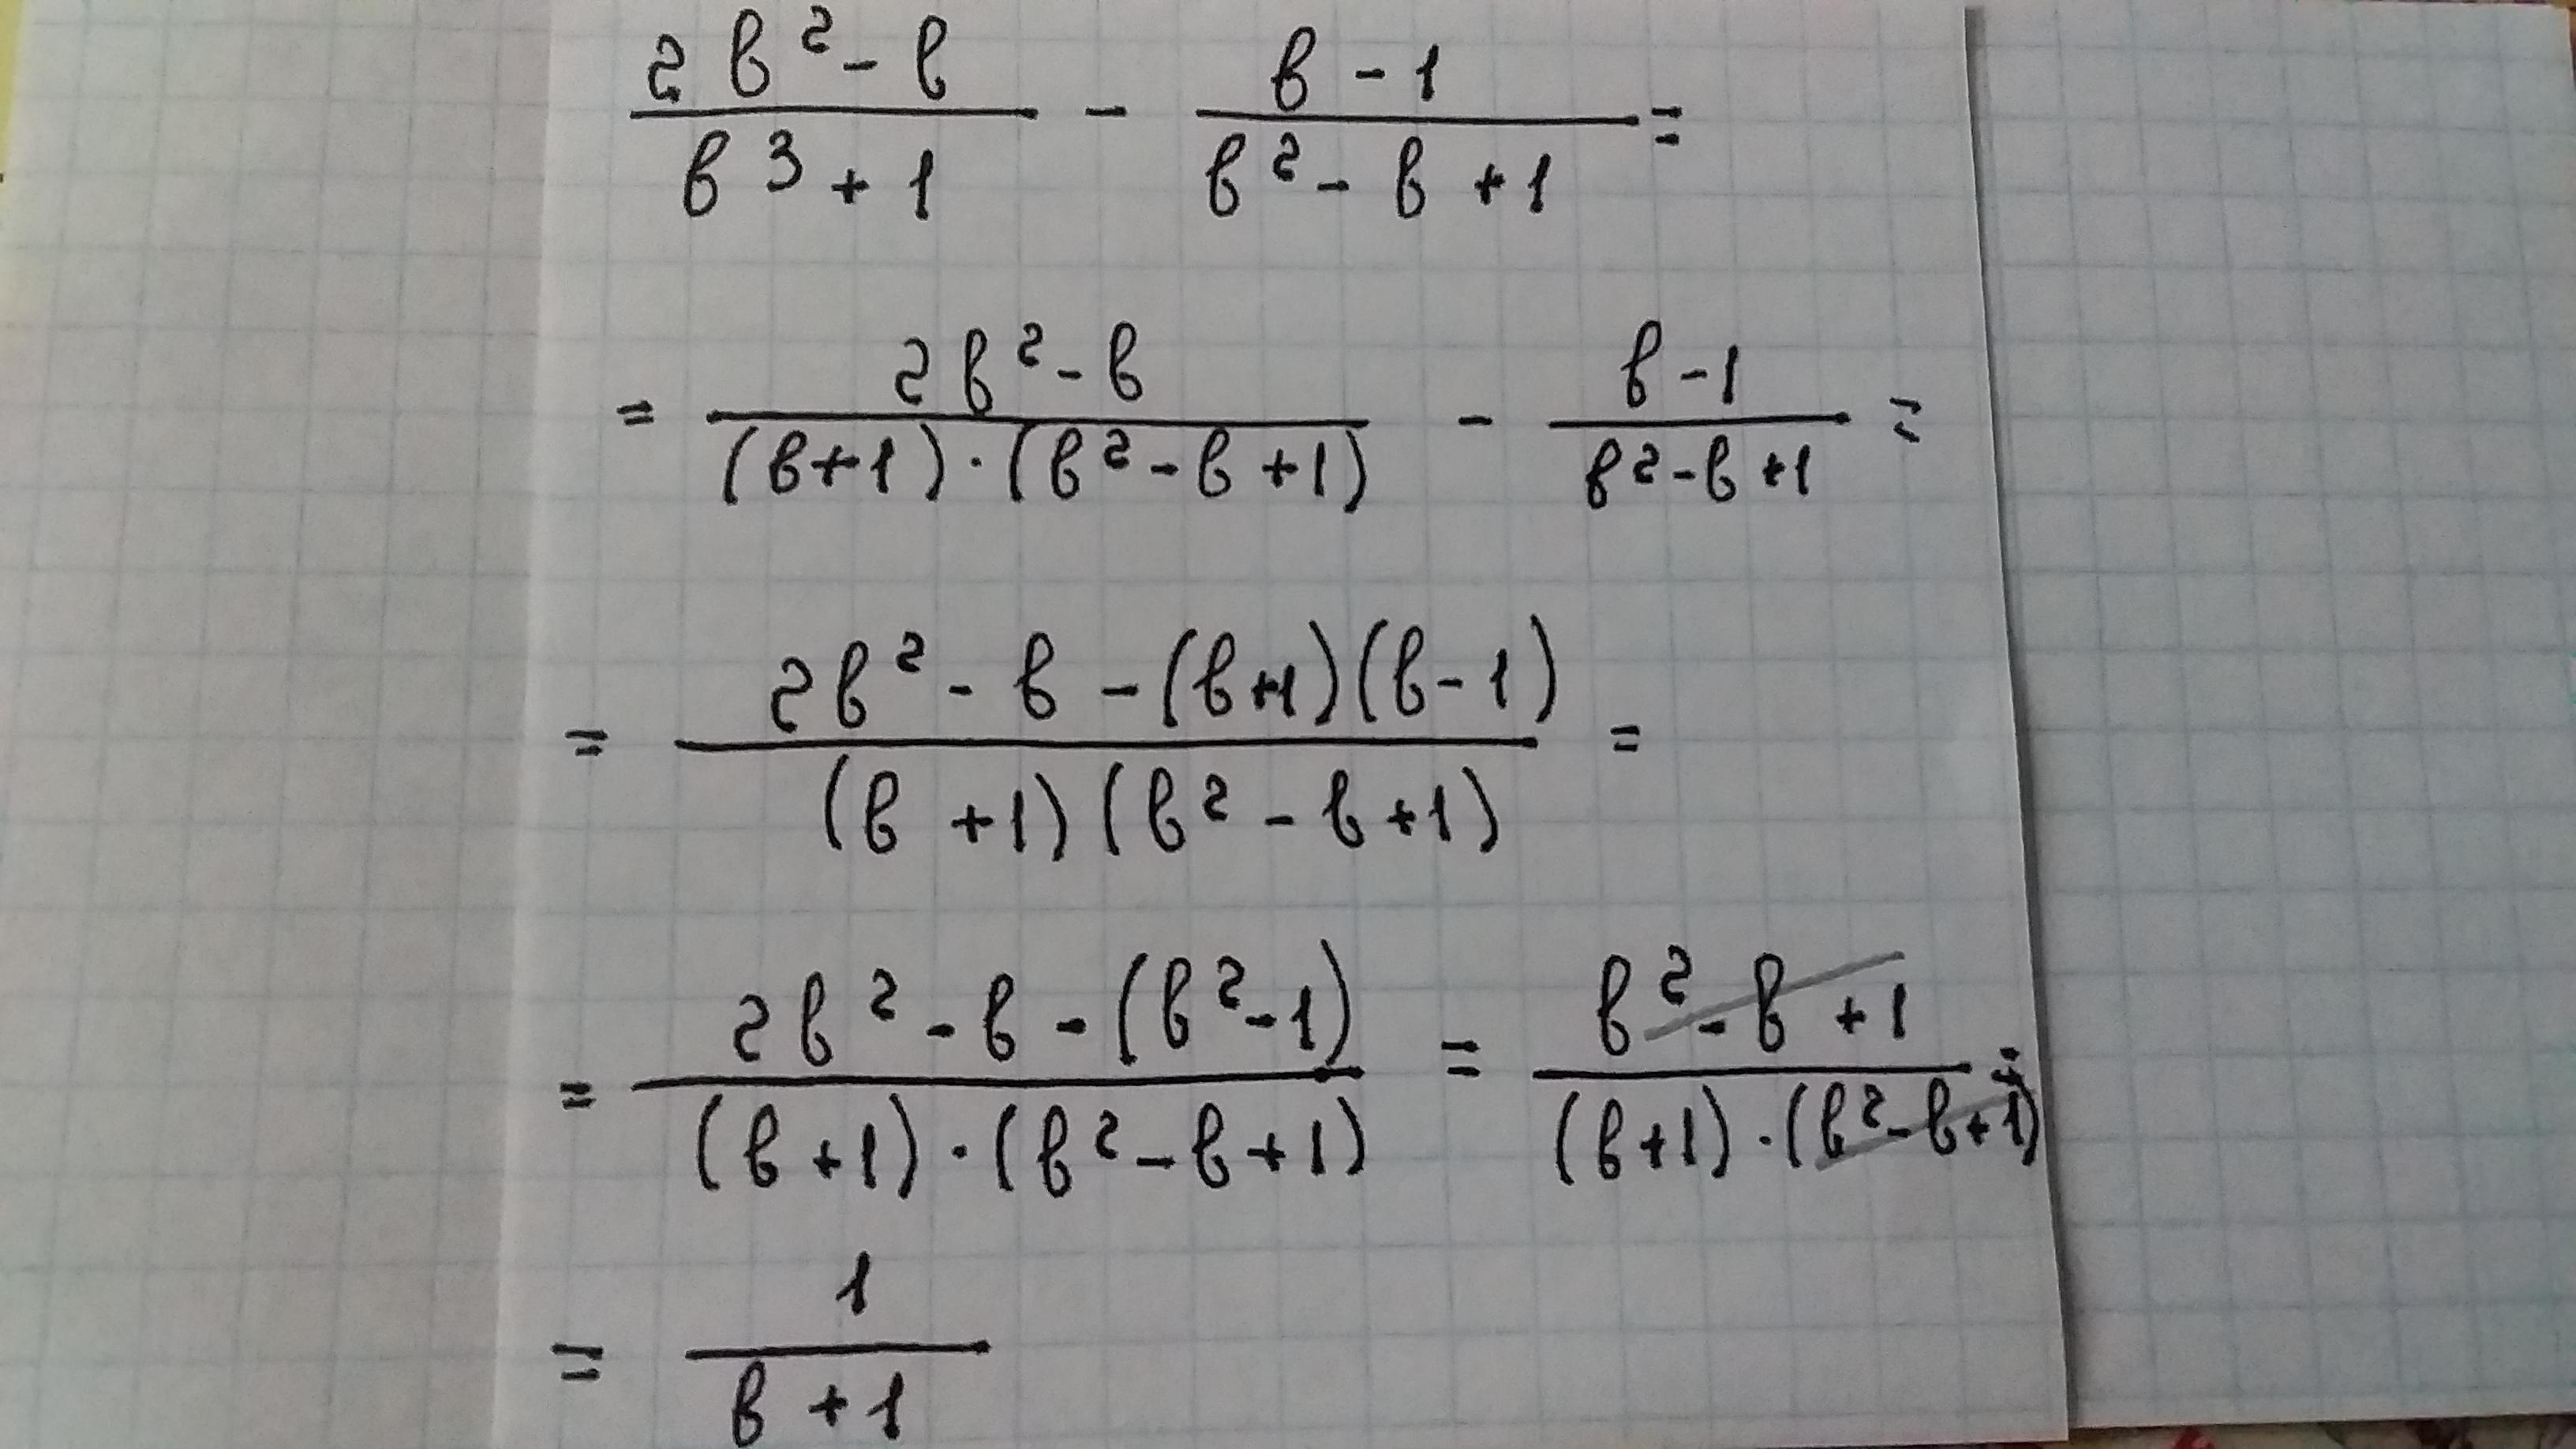 (2b² - b)/(b³ + 1) - (b - 1)/(b² - b + 1) =
= (2b² - b)/((b+1)·(b² - b + 1)) - (b - 1)/(b² - b + 1) =
= (2b² - b - (b+1)(b-1))/((b + 1)(b² - b + 1)) =
= (2b² - b - (b² - 1))/((b + 1)·(b² - b + 1)) = (b² - b + 1)/((b+1)·(b² - b + 1)) =
= 1/(b + 1)